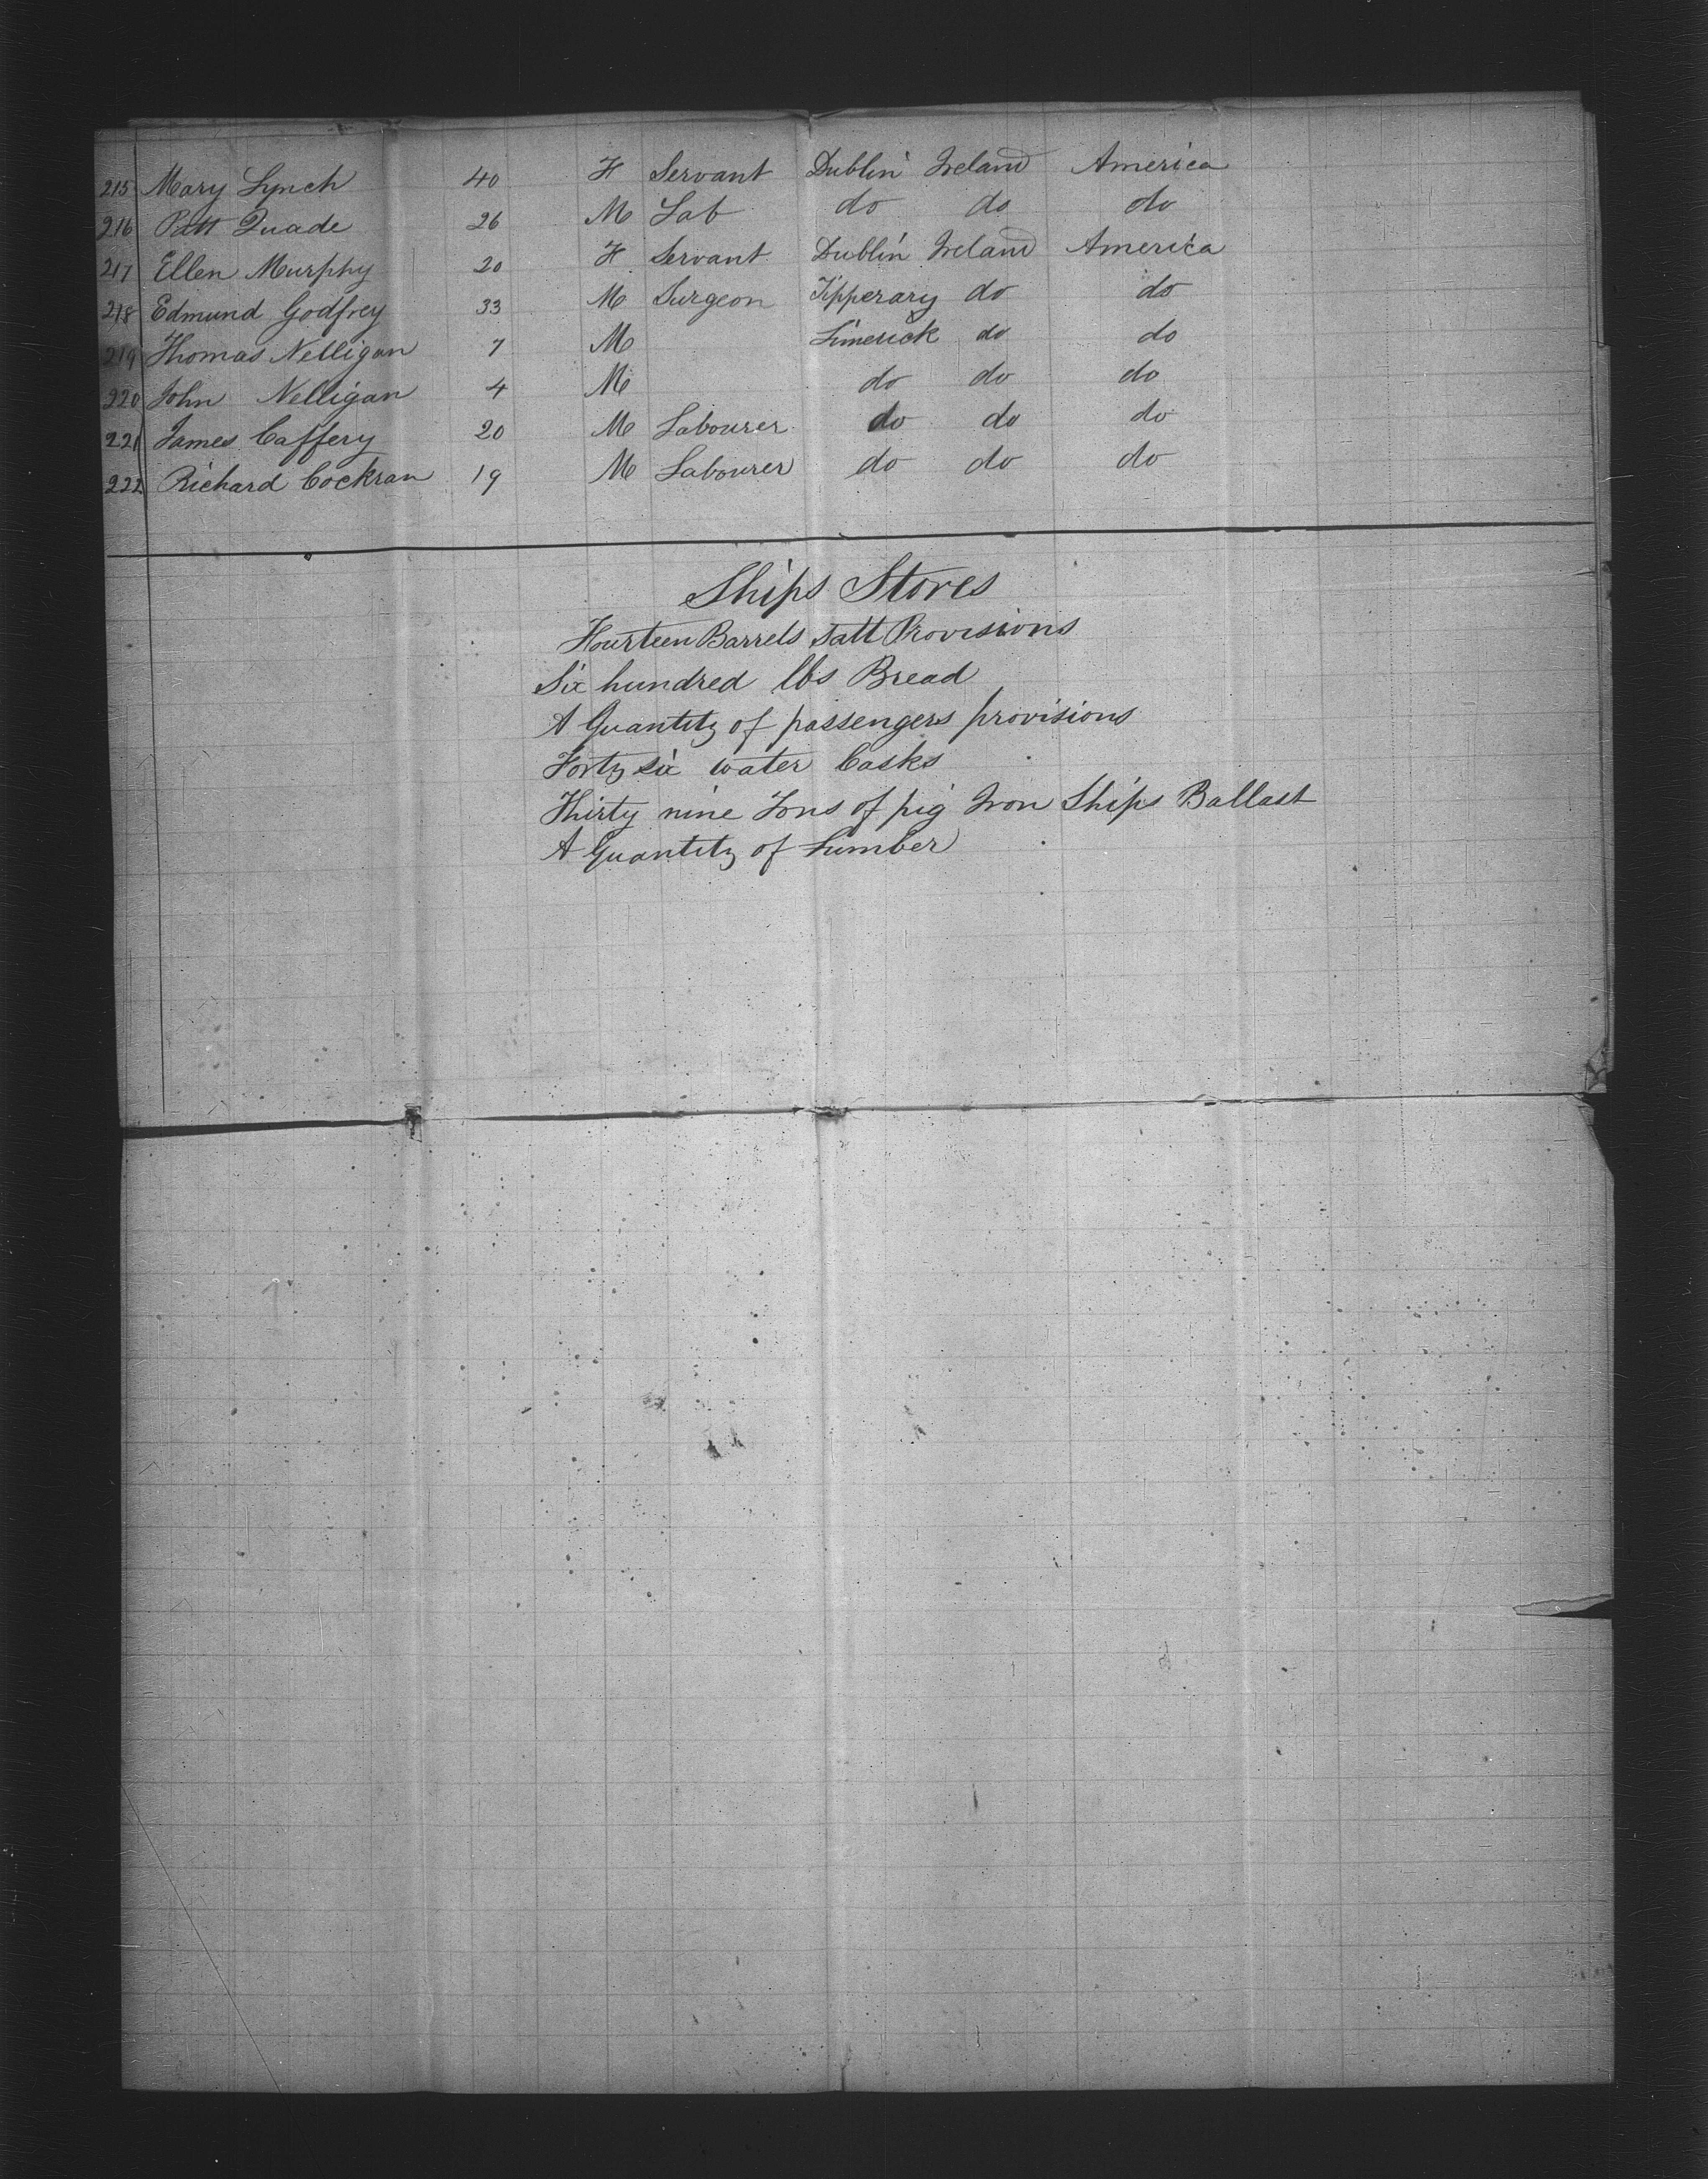 215 Mary Lynch 40 F Servant Dublin Ireland America
216 Patt Quade 26 M Lab do do do
217 Ellen Murphy 20 F Servant Dublin Ireland America
218 Edmund Godfrey 33 M Surgeon Tipperary do do
219 Thomas Nelligan 7 M Limerick do do
220 John Nelligan 4 M do do do
221 James Caffery 20 M Labourer do do do
222 Richard Cockran 19 M Labourer do do do
Ships Stores
Fourteen Barrels Salt Provisions
Six hundred lbs Bread
A Quantity of passengers provisions
Forty six water Casks
Thirty nine Tons of pig Iron Ships Ballast
A Quantity of Lumber